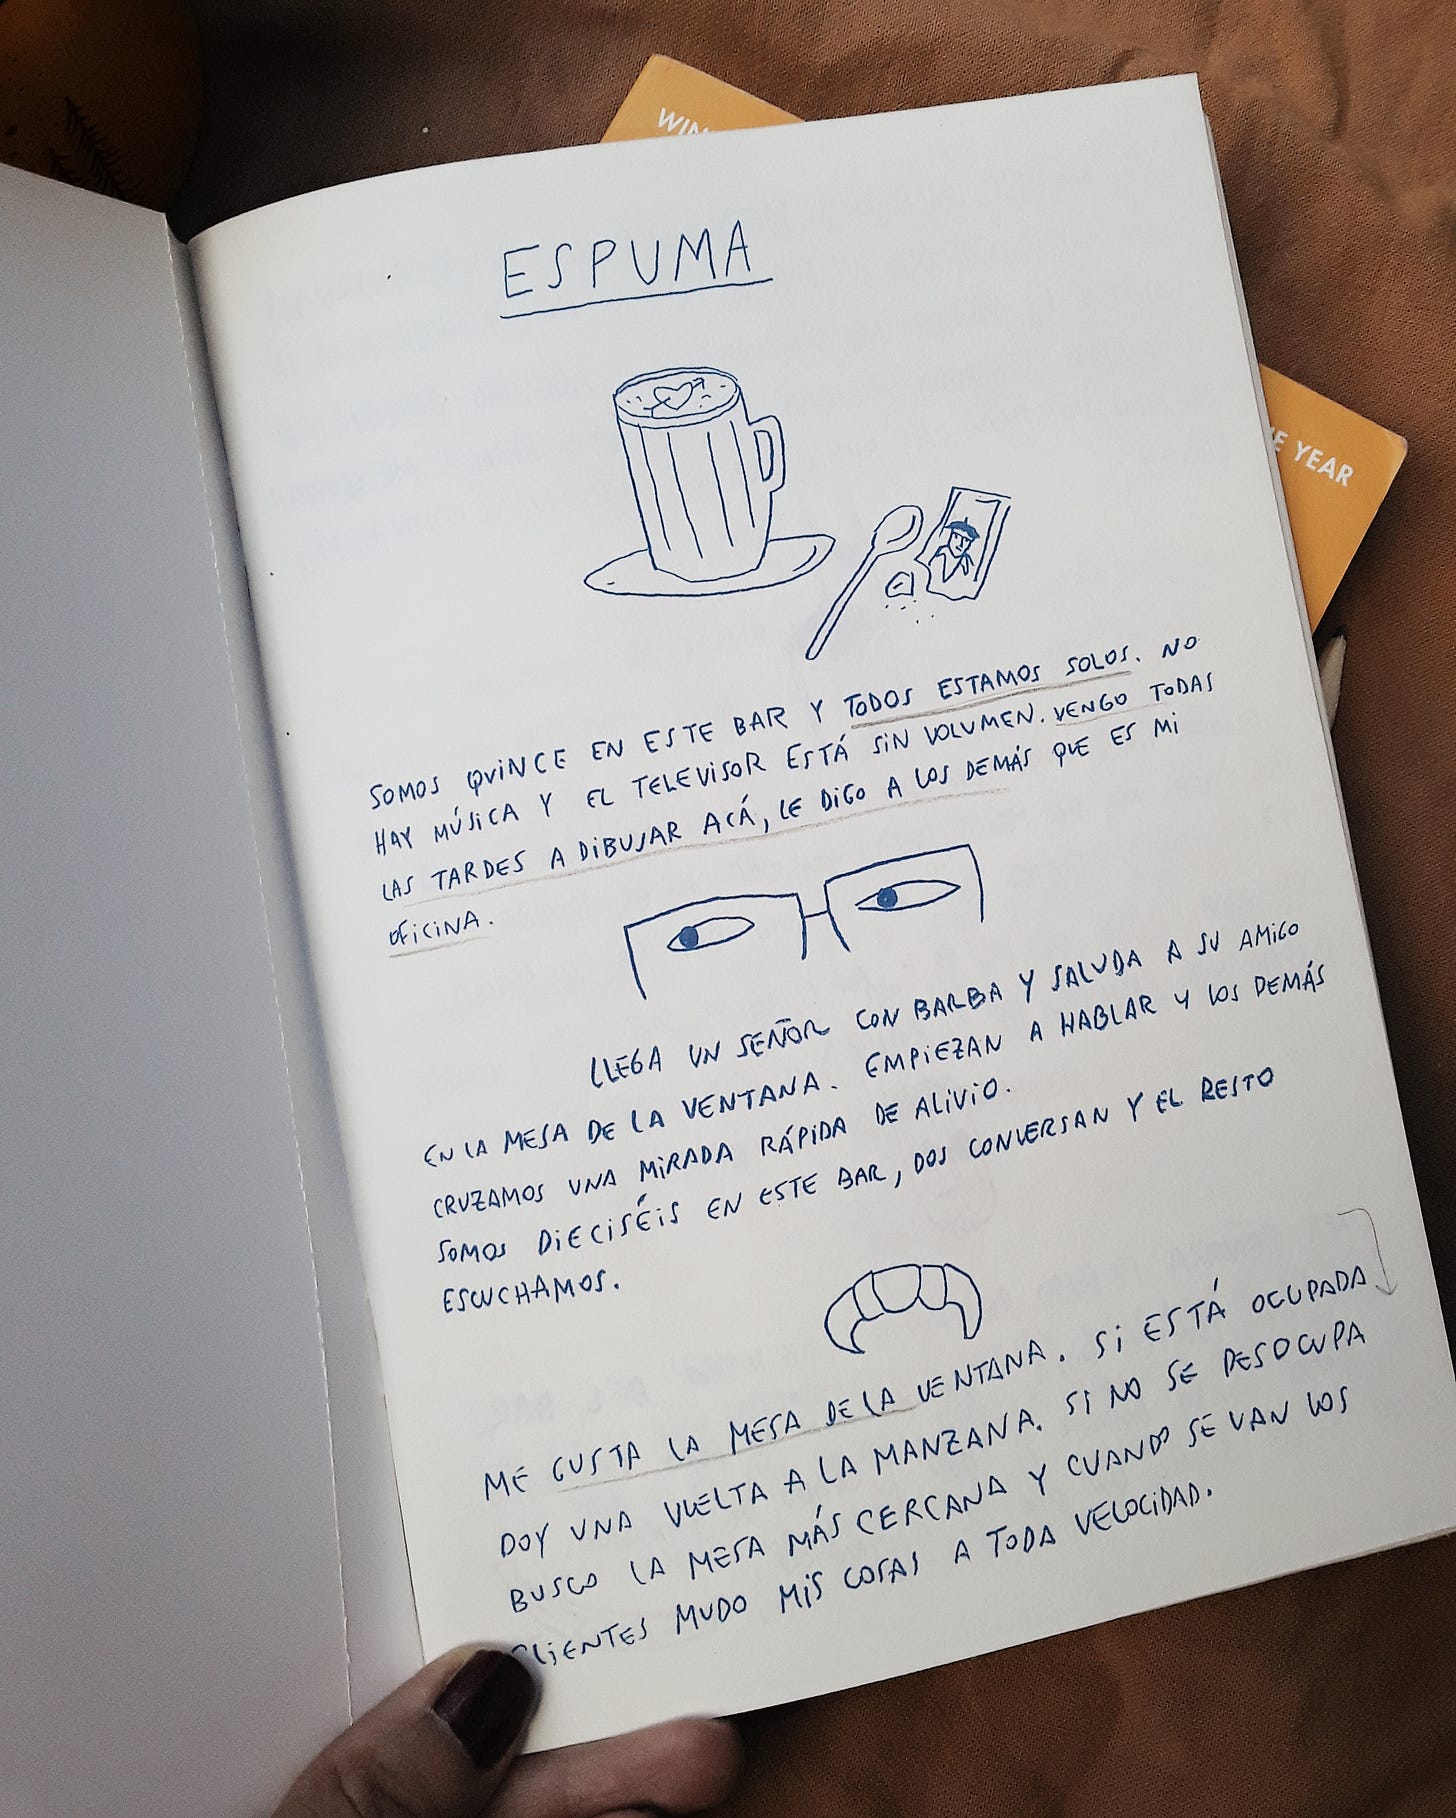 WIN
E YEAR
ESPUMA
SOMOS QUINCE EN ESTE BAR Y TODOS ESTAMOS SOLOS. NO
HAY MÚSICA Y EL TELEVISOR ESTÁ SIN VOLUMEN. VENGO TODAS
LAS TARDES A DIBUJAR ACÁ, LE DIGO A LOS DEMÁS QUE ES MI
OFICINA.
LLEGA UN SEÑOR CON BARBA Y SALUDA A SU AMIGO
EN LA MESA DE LA VENTANA. EMPIEZAN A HABLAR Y LOS DEMÁS
CRUZAMOS UNA MIRADA RÁPIDA DE ALIVIO.
SOMOS DIECISÉIS EN ESTE BAR, DOS CONVERSAN Y EL RESTO
ESCUCHAMOS.
ME GUSTA LA MESA DE LA VENTANA. SI ESTÁ OCUPADA
DOY UNA VUELTA A LA MANZANA. SI NO SE DESOCUPA
BUSCO LA MESA MÁS CERCANA Y CUANDO SE VAN LOS
CLIENTES MUDO MIS COSAS A TODA VELOCIDAD.